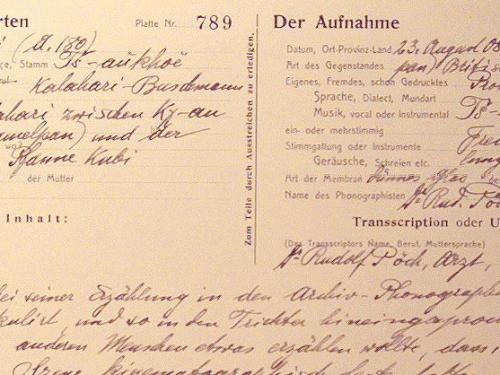 rten Platte Nr. 789
(A. 180)
çe, Stamm Ts-aukhoë
Kalahari-Buschmann
ahari zwischen Ky-au
amelpan) und der
Pfanne Kubi
der Mutter
Inhalt:
Zum Teile durch Ausstreichen zu erledigen.
Der Aufnahme
Datum, Ort-Provinz-Land 23. August 08
Art des Gegenstandes pan) Britis
Eigenes, Fremdes, schon Gedrucktes Pro
Sprache, Dialect, Mundart Ts-
Musik, vocal oder instrumental
ein- oder mehrstimmig
Stimmgattung oder Instrumente
Geräusche, Schreien etc.
Art der Membran de
Name des Phonographisten Dr. Rud. Pöc
Transcription oder U
(Des Transcriptors Name, Beruf, Muttersprache)
Dr. Rudolf Pöch, Arzt,
ei seiner Erzählung in den Archiv-Phonographe
kulirt, und so in den Trichter hineingesproc
anderen Menschen etwas erzählen wollte, dass i
Szene kinematographisch